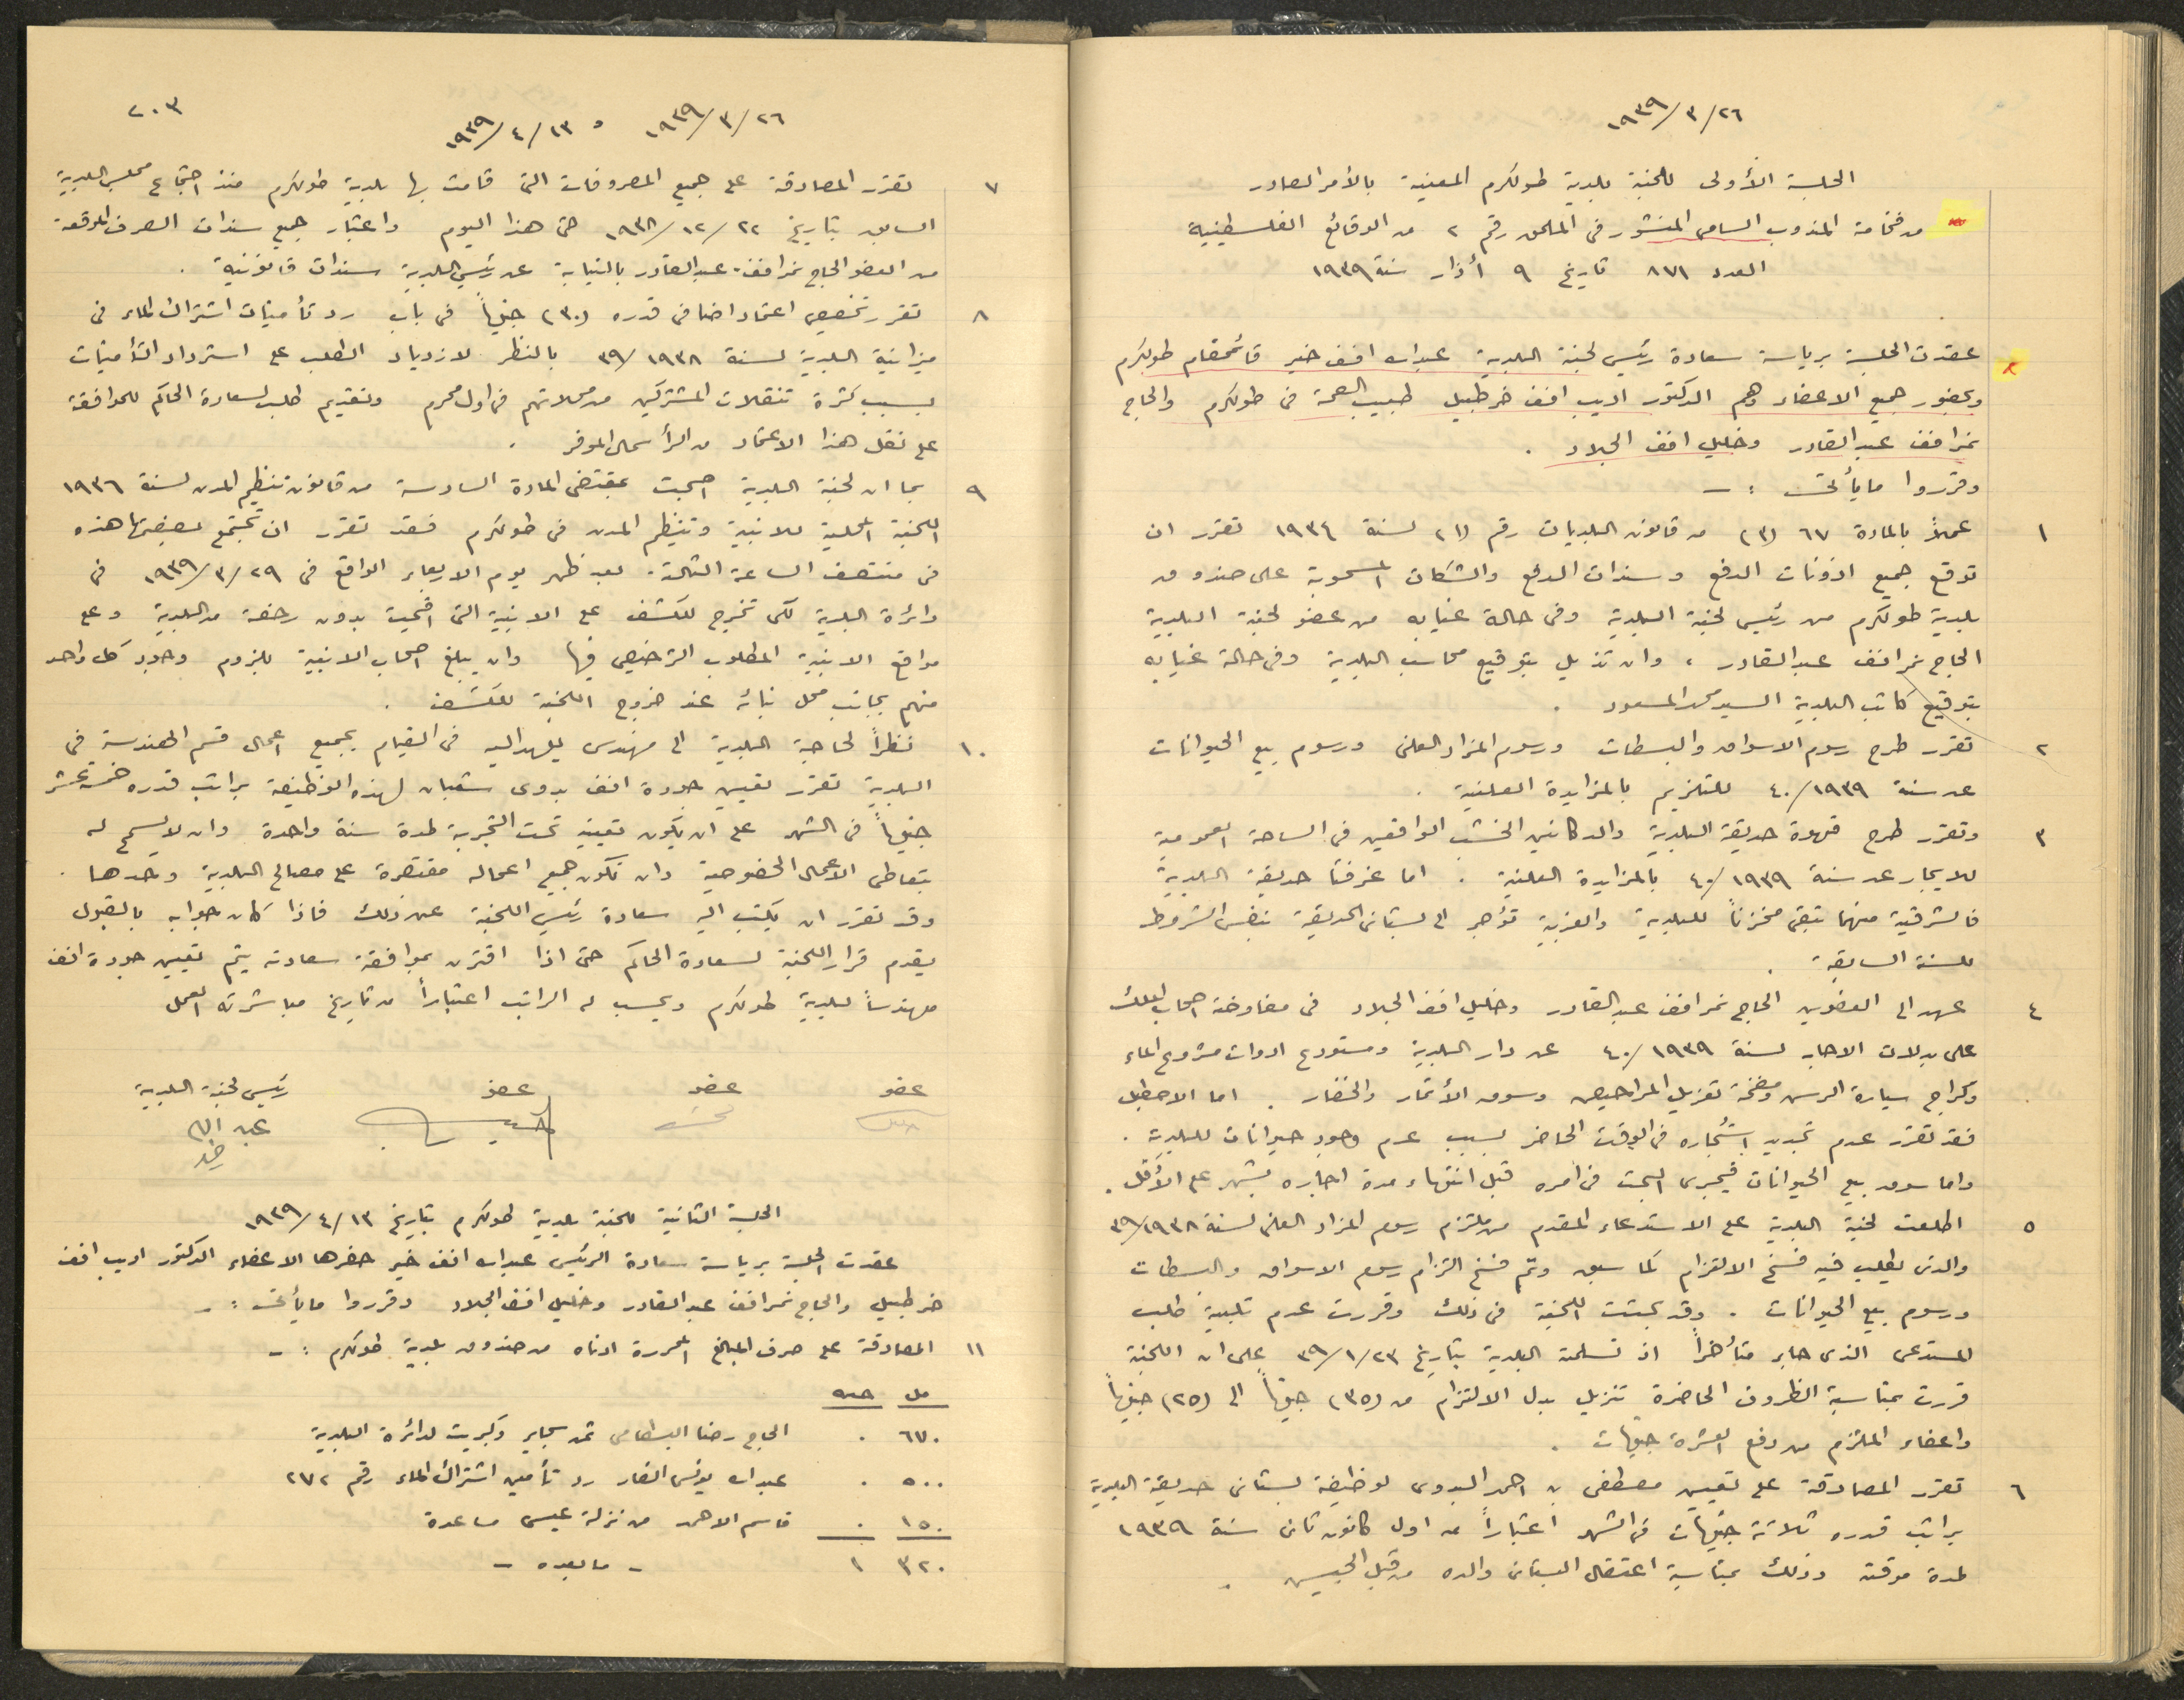 ١٩٣٩/٣/٢٦
الجلسة الأولى للجنة بلدية طولكرم المعنية بالأمر الصادر
من فخامة المندوب السامي المنشور في الملحق رقم ٢ من الوقائع الفلسطينية
العدد ٨٧١ تاريخ ٩ أذار سنة ١٩٣٩
عقدت الجلسة برياسة سعادة رئيس لجنة البلدية عبدالله افندي خير قائمقام طولكرم
وبحضور جميع الاعضاء وهم الدكتور اديب افندي خرطبيل طبيب الصحة في طولكرم والحاج
نمر افندي عبدالقادر وخليل افندي الجلاد .
وقرروا ما يأتي : ـ
١ عملاً بالمادة ٦٧ (٣) من قانون البلديات رقم (١) لسنة ١٩٣٤ تقرر ان
توقع جميع اذونات الدفع وسندات الدفع والشكات المسحوبة على صندوق
بلدية طولكرم من رئيس لجنة البلدية وفي حالة غيابه من عضو لجنة البلدية
الحاج نمر افندي عبدالقادر ، وان تذيل بتوقيع محاسب البلدية وفي حالة غيابه
بتوقيع كاتب البلدية السيد محمد المسعود .
٢ تقرر طرح رسوم الاسواق والبسطات ورسوم المزاد العلني ورسوم بيع الحيوانات
عن سنة ١٩٣٩/٤٠ للتلزيم بالمزايدة العلنية .
٣ وتقرر طرح قهوة حديقة البلدية والدكانين الخشب الواقعين في الساحة العمومية
للايجار عن سنة ١٩٣٩/٤٠ بالمزايدة العلنية . اما غرفتا حديقة البلدية
فالشرقية منهما تبقى مخزناً للبلدية والغربية تؤجر الى بستاني الحديقة بنفس الشروط
للسنة السابقة .
٤ عهد الى العضوين الحاج نمر افندي عبدالقادر وخليل افندي الجلاد في مفاوضة اصحاب الملك
على بدلات الاجار لسنة ١٩٣٩/٤٠ عن دار البلدية ومستودع ادوات مشروع الماء
وكراج سيارة الرش ومضخة تنزيل المراحيض وسوق الأثمار والخضار . اما الاصطبل
فقد تقرر عدم تجديد استئجاره في الوقت الحاضر بسبب عدم وجود حيوانات للبلدية .
واما سوق بيع الحيوانات فيجرى البحث في أمره قبل انتهاء مدة اجاره بشهر على الأقل .
٥ اطلعت لجنة البلدية على الاستدعاء المقدم من ملتزم رسوم المزاد العلني لسنة ١٩٣٨/٣٩
والذي يطلب فيه فسخ الالتزام كما سبق وتم فسخ التزام رسوم الاسواق والبسطات
ورسوم بيع الحيوانات . وقد بحثت اللجنة في ذلك وقررت عدم تلبية طلب
المستدعي الذي جاء متأخراً اذ تسلمته البلدية بتاريخ ٣٩/١/٢٣ على ان اللجنة
قررت بمناسبة الظروف الحاضرة تنزيل بدل الالتزام من (٣٥) جنيهاً الى (٢٥) جنيهاً
واعفاء الملتزم من دفع العشرة جنيهات .
٦ تقرر المصادقة على تعيين مصطفى بن احمد البدوى لوظيفة بستاني حديقة البلدية
براتب قدره ثلاثة جنيهات في الشهر اعتباراً من اول كانون ثاني سنة ١٩٣٩
لمدة موقتة وذلك بمناسبة اعتقال البستاني والده من قبل الجيش .
٢٠٣
١٩٣٩/٣/٢٦ و ١٩٣٩/٤/١٣
٧ تقرر المصادقة على جميع المصروفات التي قامت بها بلدية طولكرم منذ اجتماع مجلس البلدية
السابق بتاريخ ١٩٣٨/١٢/٢٢ حتى هذا اليوم واعتبار جميع سندات الصرف الموقعة
من العضو الحاج نمر افندي عبدالقادر بالنيابة عن رئيس البلدية سندات قانونية .
٨ تقرر تخصيص اعتماد اضافي قدره (٣٠) جنيهاً في باب رد تأمينات اشتراك الماء في
ميزانية البلدية لسنة ١٩٣٨/٣٩ بالنظر لازدياد الطلب على استرداد التأمينات
بسبب كثرة تنقلات المشتركين من محلاتهم في اول محرم وتقديم طلب لسعادة الحاكم للموافقة
على نقل هذا الاعتماد من الرأسمال الموفر .
٩ بما ان لجنة البلدية اصبحت بمقتضى المادة السادسة من قانون تنظيم المدن لسنة ١٩٣٦
اللجنة المحلية للابنية وتنظيم المدن في طولكرم فقد تقرر ان تجتمع بصفتها هذه
في منتصف الساعة الثالثة بعد ظهر يوم الاربعاء الواقع في ١٩٣٩/٣/٢٩ في
دائرة البلدية لكي تخرج للكشف على الابنية التي اقيمت بدون رخصة من البلدية وعلى
مواقع الابنية المطلوب الترخيص فيها وان يبلغ اصحاب الابنية بلزوم وجود كل واحد
منهم بجانب محل بنائه عند خروج اللجنة للكشف .
١٠ نظراً لحاجة البلدية الى مهندس يعهد اليه في القيام بجميع اعمال قسم الهندسة في
البلدية تقرر تعيين جودة افندي بدوى شعبان لهذه الوظيفة براتب قدره خمسة عشر
جنيهاً في الشهر على ان يكون تعيينه تحت التجربة لمدة سنة واحدة وان لا يسمح له
بتعاطي الاعمال الخصوصية وان تكون جميع اعماله مقتصرة على مصالح البلدية وحدها .
وقد تقرر ان يكتب اليه سعادة رئيس اللجنة عن ذلك فاذا كان جوابه بالقبول
يقدم قرار اللجنة لسعادة الحاكم حتى اذا اقترن بموافقة سعادته يتم تعيين جودة افندي
مهندساً لبلدية طولكرم ويحسب له الراتب اعتباراً من تاريخ مباشرته العمل
عضو عضو عضو رئيس لجنة البلدية
عبدالله
خير
الجلسة الثانية للجنة بلدية طولكرم بتاريخ ١٩٣٩/٤/١٣
عقدت الجلسة برياسة سعادة الرئيس عبدالله افندي خير حضرها الاعضاء الدكتور اديب افندي
خرطبيل والحاج نمر افندي عبدالقادر وخليل افندي الجلاد وقرروا ما يأتي : ـ
١١ المصادقة على صرف المبالغ المحررة ادناه من صندوق بلدية طولكرم : ـ
مل جنيه
٦٧٠ ٠ الحاج رضا البسطامى ثمن سجاير وكبريت لدائرة البلدية
٥٠٠ ٠ عبدالله يونس الفار رد تأمين اشتراك الماء رقم ٢٧٢
١٥٠ ٠ قاسم الاحمد من نزلة عيسى مساعدة
٣٢٠ ١ ـ ما بعده ـ